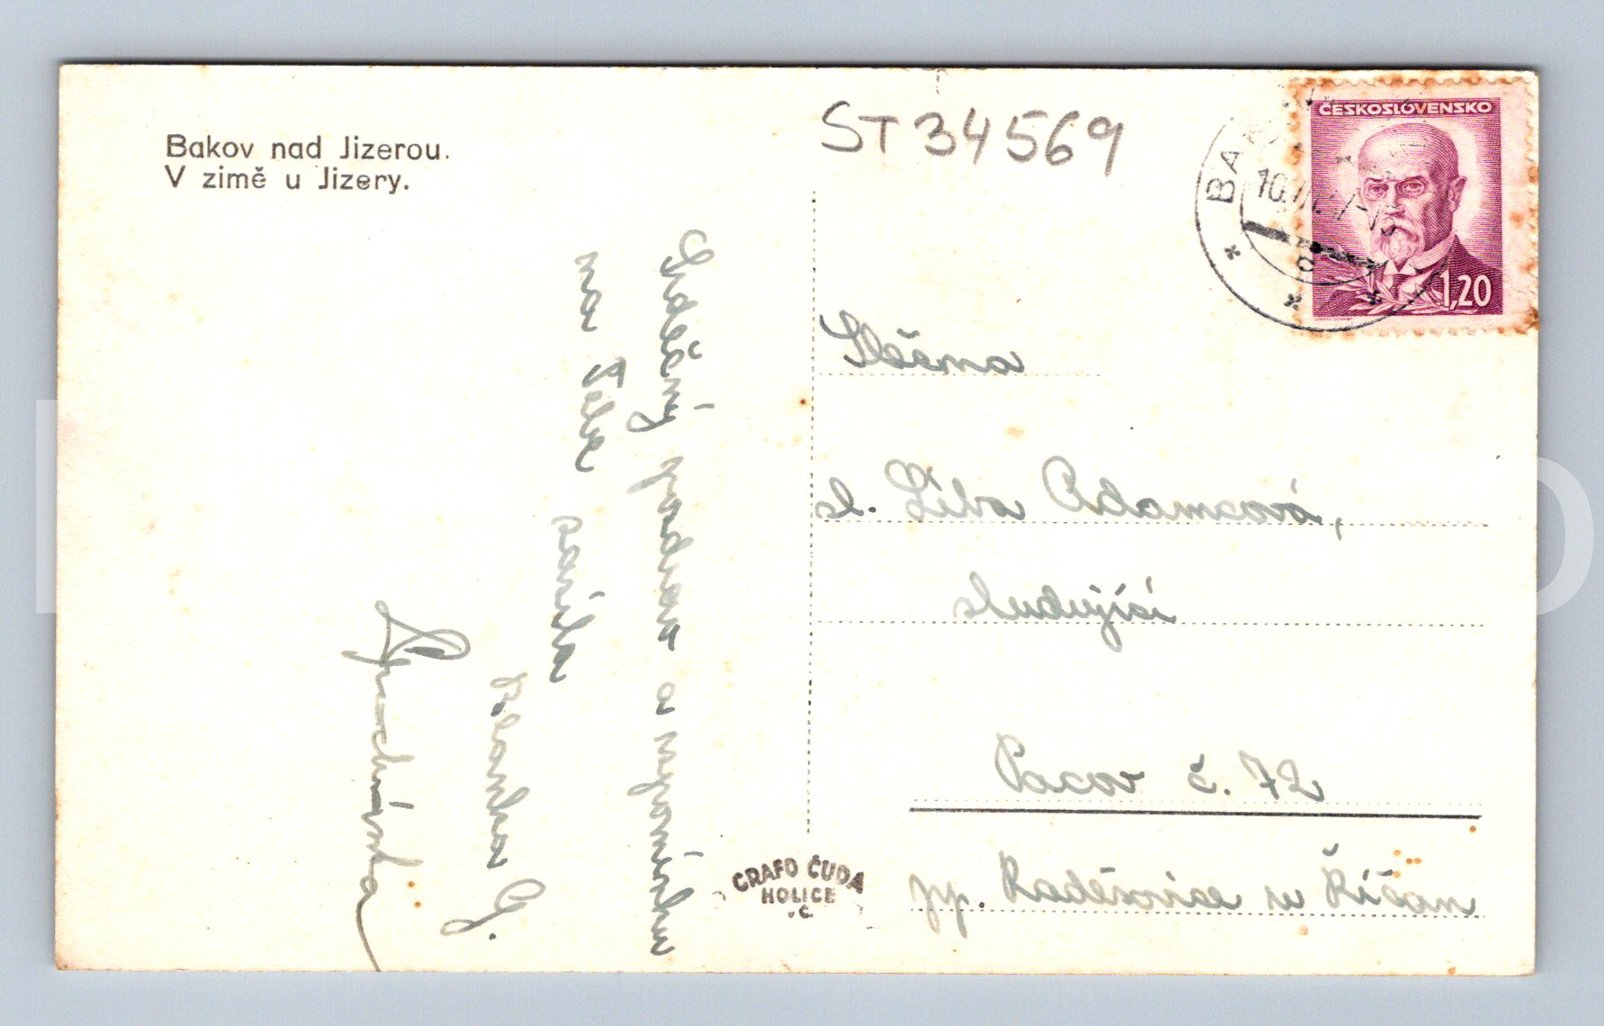 Bakov nad Jizerou.
V zimě u Jizery.
ST 34569
ČESKOSLOVENSKO
1,20
Srdečný pozdrav a vzpomínku
na Tebe zasílá
Blanka J.
Slečna
sl. Líba Adamcová,
studující
Pacov č. 72
pp. Raděšovice u Říčan
GRAFO ČUDA
HOLICE